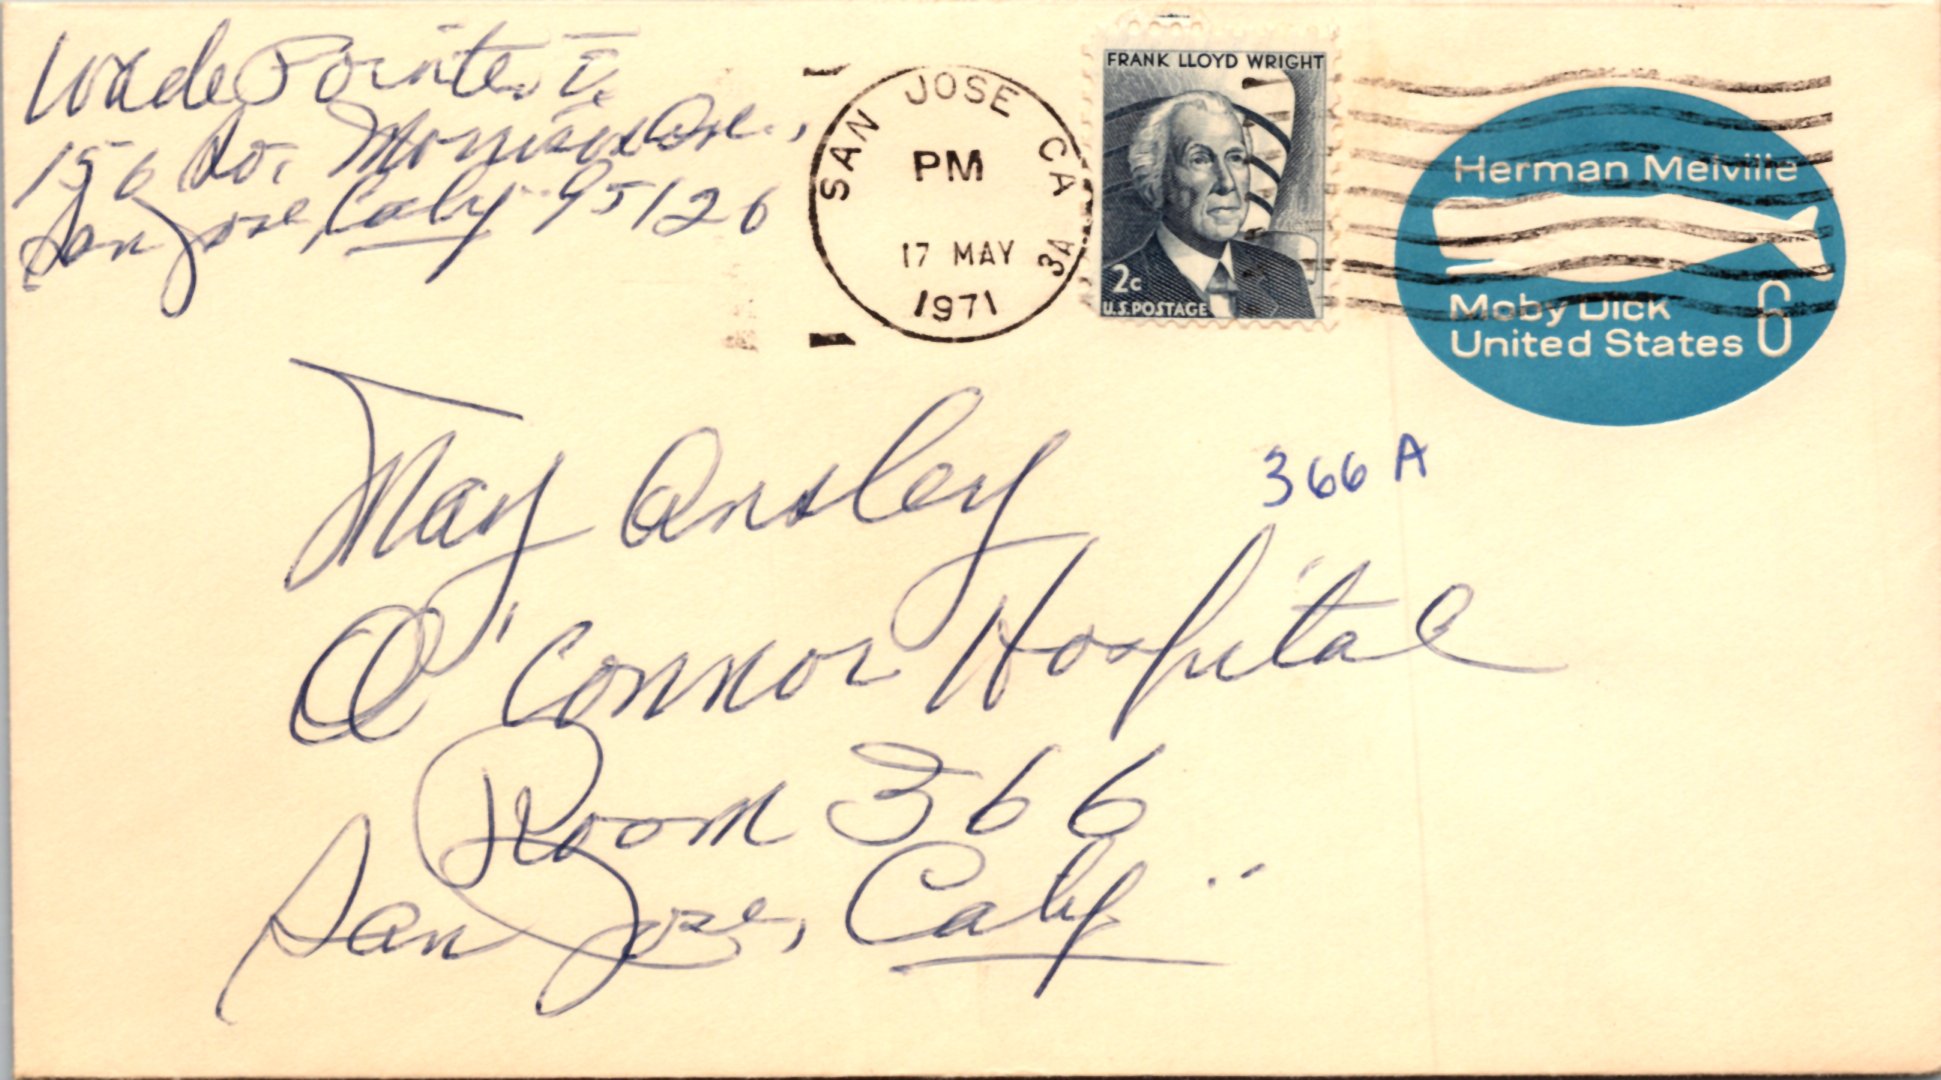 Wade Pointe
156 So. Morrison Ave.,
San Jose, Calif 95126
SAN JOSE CA
PM
17 MAY
1971
3A
FRANK LLOYD WRIGHT
2c
U.S. POSTAGE
Herman Melville
Moby Dick
United States 6
366 A
May Ansley
O'Connor Hospital
Room 366
San Jose, Calif